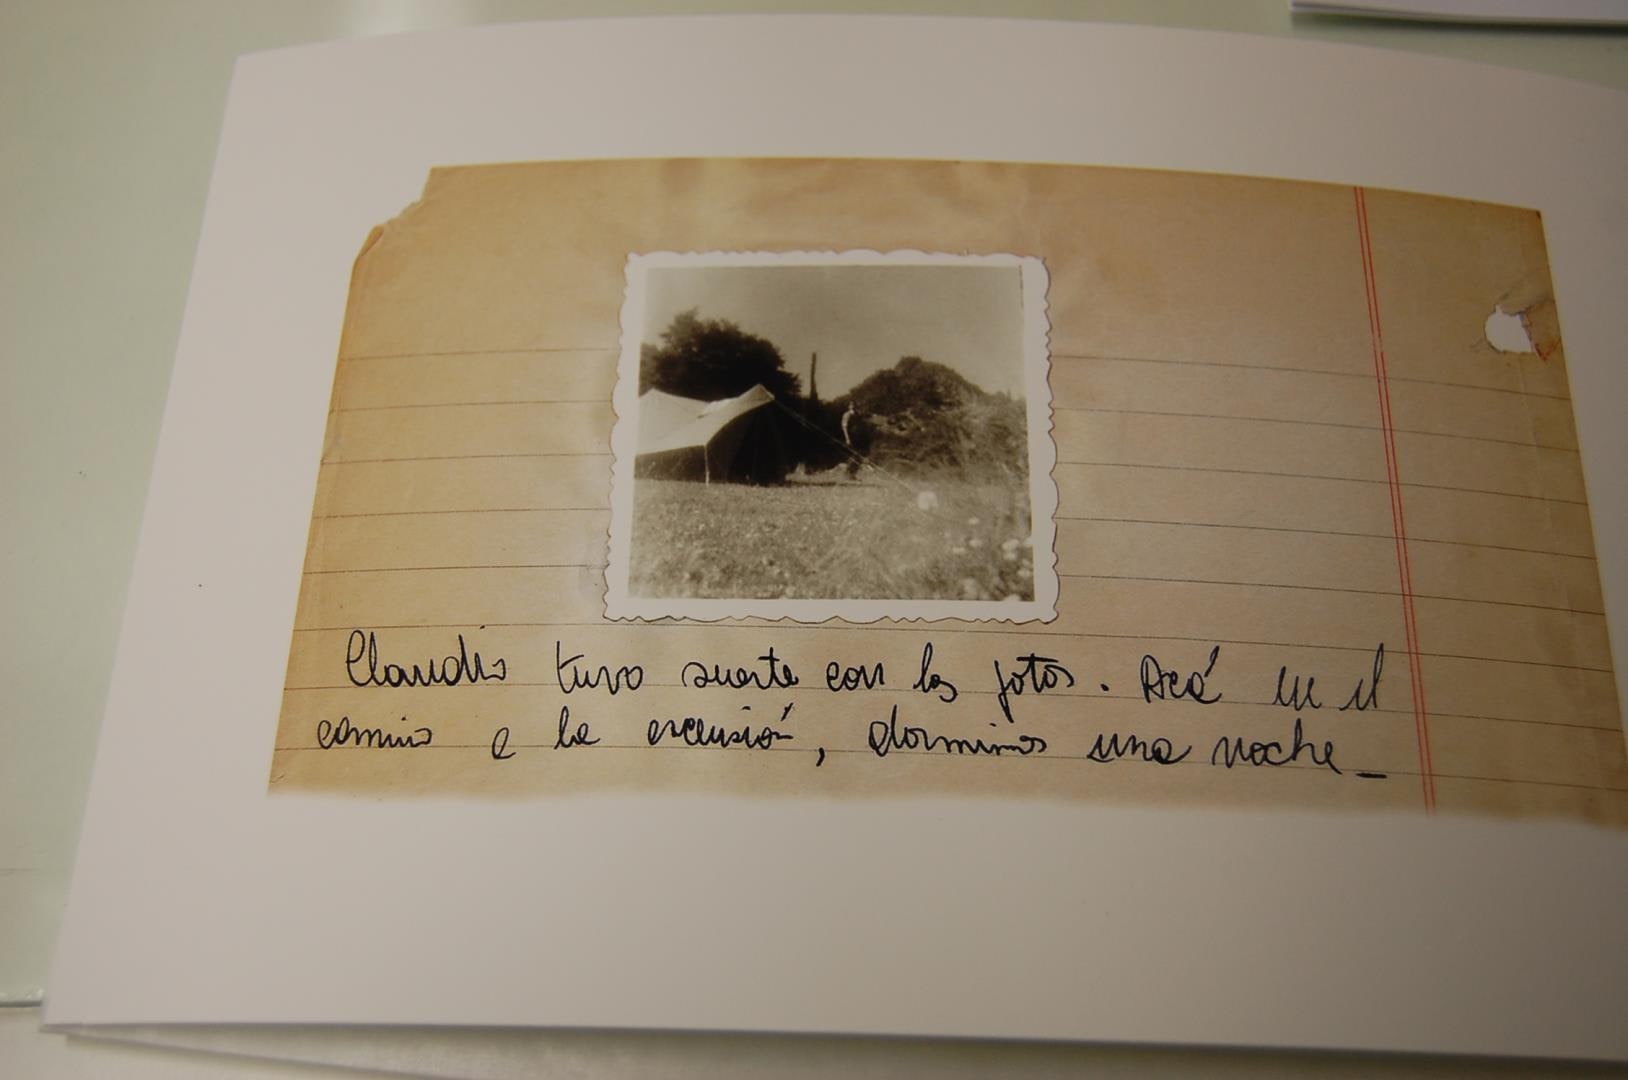 Claudio tuvo suerte con las fotos. Acá en el
camino a la excusión, dormimos una noche_